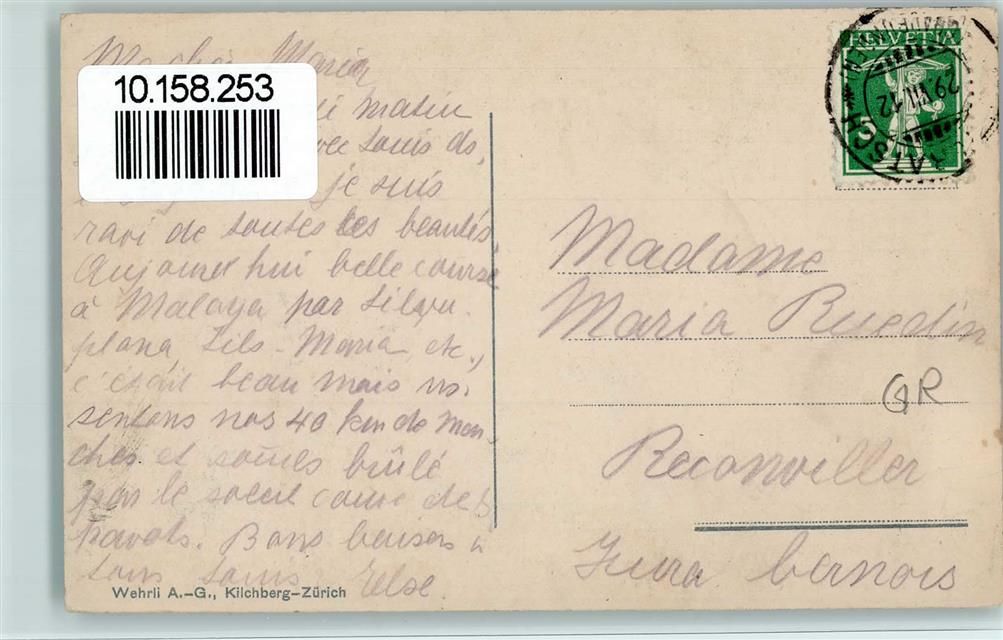 10.158.253
Ma chère Maria
matin
Louis ds,
je suis
ravi de toutes les beautés.
Aujourd'hui belle course
à Maloya par Silva-
plana, Sils-Maria, etc.,
c'était beau mais ns.
sentons nos 40 km de mar-
ches et sommes brûlé
par le soleil comme des
pavots. Bons baisers à
tous Louis Else.
Wehrli A.-G., Kilchberg-Zürich
HELVETIA
5
29.VII.12
Madame
Maria Ruedin
GR
Reconviller
Jura bernois